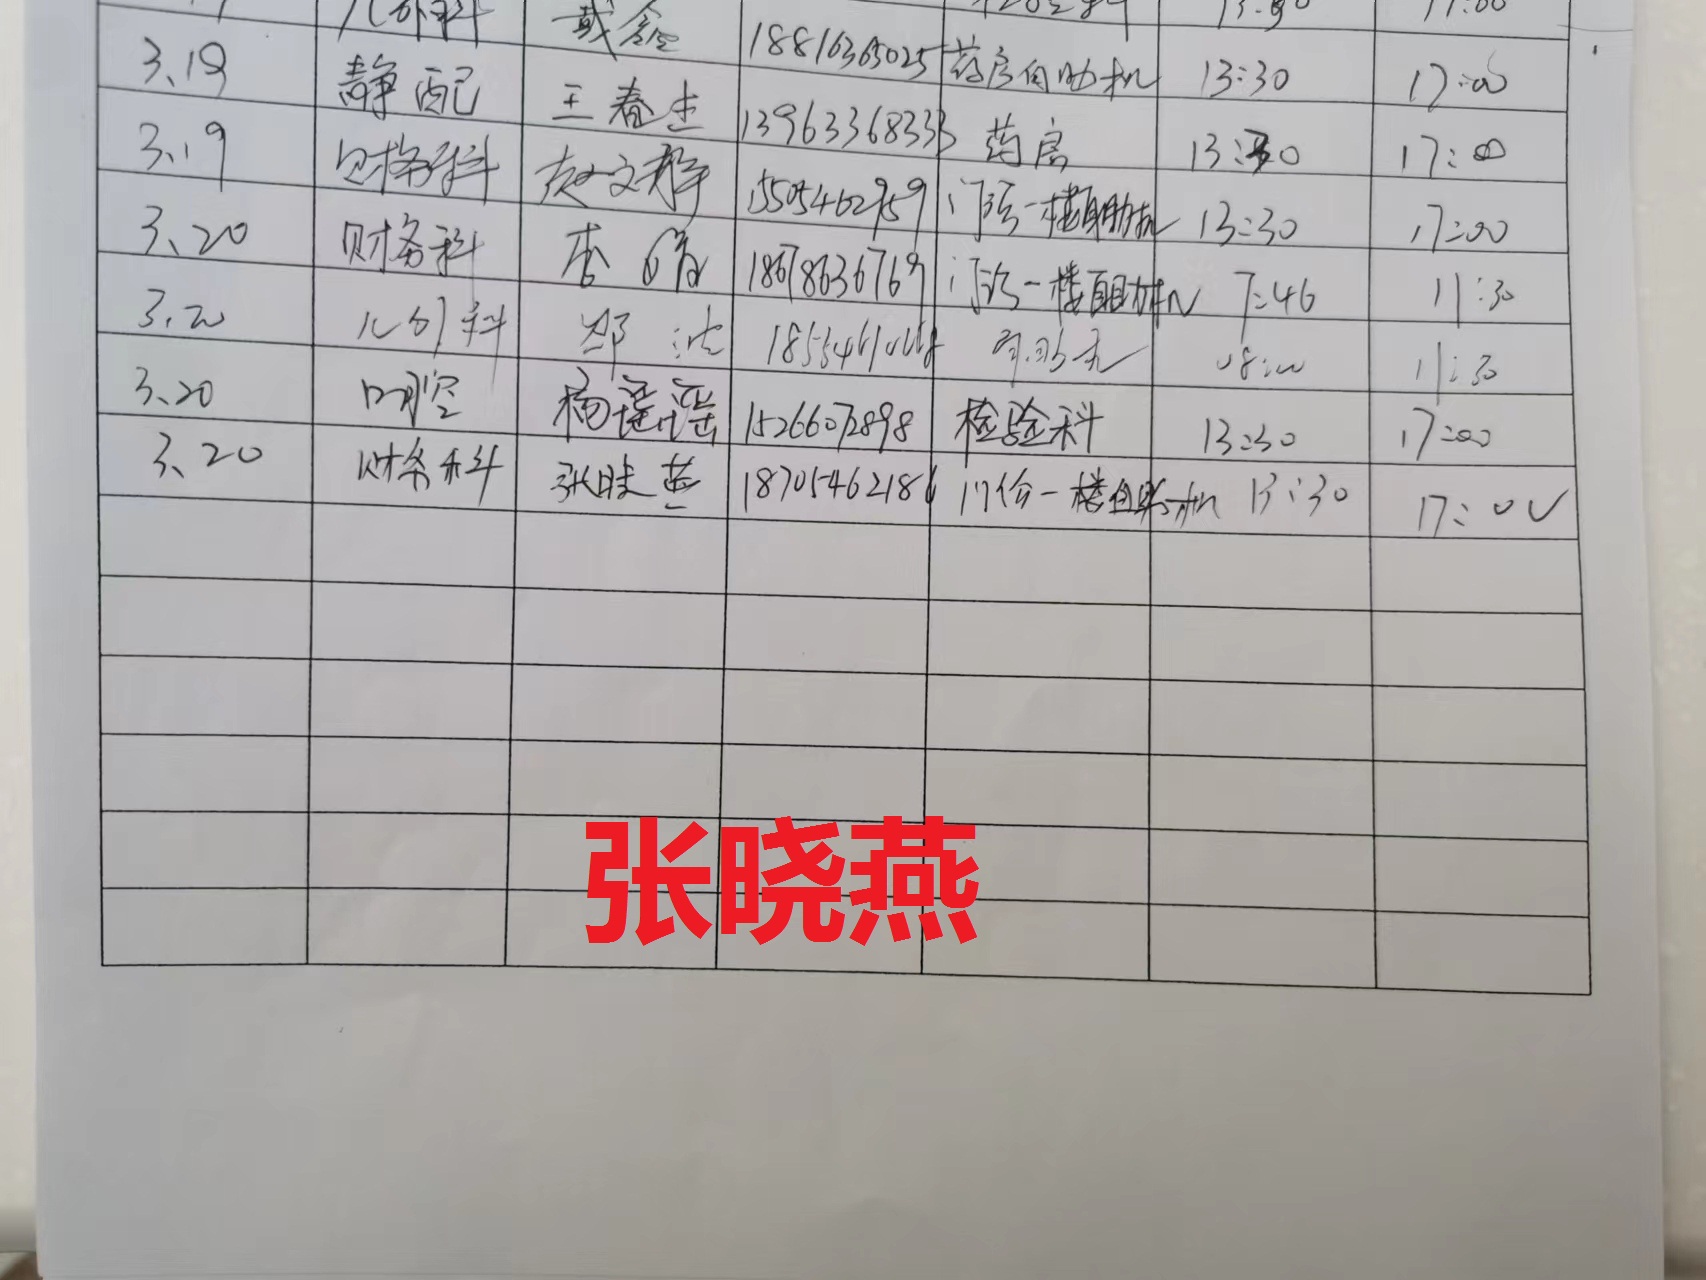 儿外科 戴鑫 18816365025 13:30 17:00
3.19 静配 王春生 13963368333 药房自助机 13:30 17:00
3.19 财务科 赵文静 15505462959 药房 13:30 17:00
3.20 财务科 李 18678636769 门诊一楼自助机 13:30 17:00
3.20 儿外科 郑 门诊一楼自助机 7:46 11:30
3.20 口腔 杨谣谣 15266072898 自助机 08:00 11:30
3.20 财务科 张晓燕 18705462186 检验科 13:30 17:00
门诊一楼自助机 13:30 17:00
张晓燕